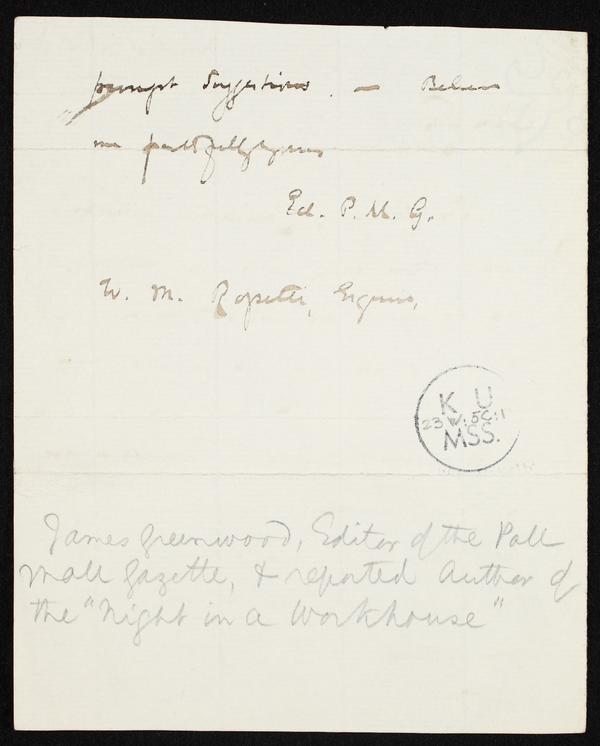 prompt suggestions. — Believe
me faithfully yours
Ed. P. M. G.
W. M. Rossetti, Esquire,
K U
23 W: 5C:1
MSS.
James Greenwood, Editor of the Pall
Mall Gazette, & reported author of
the "Night in a Workhouse"